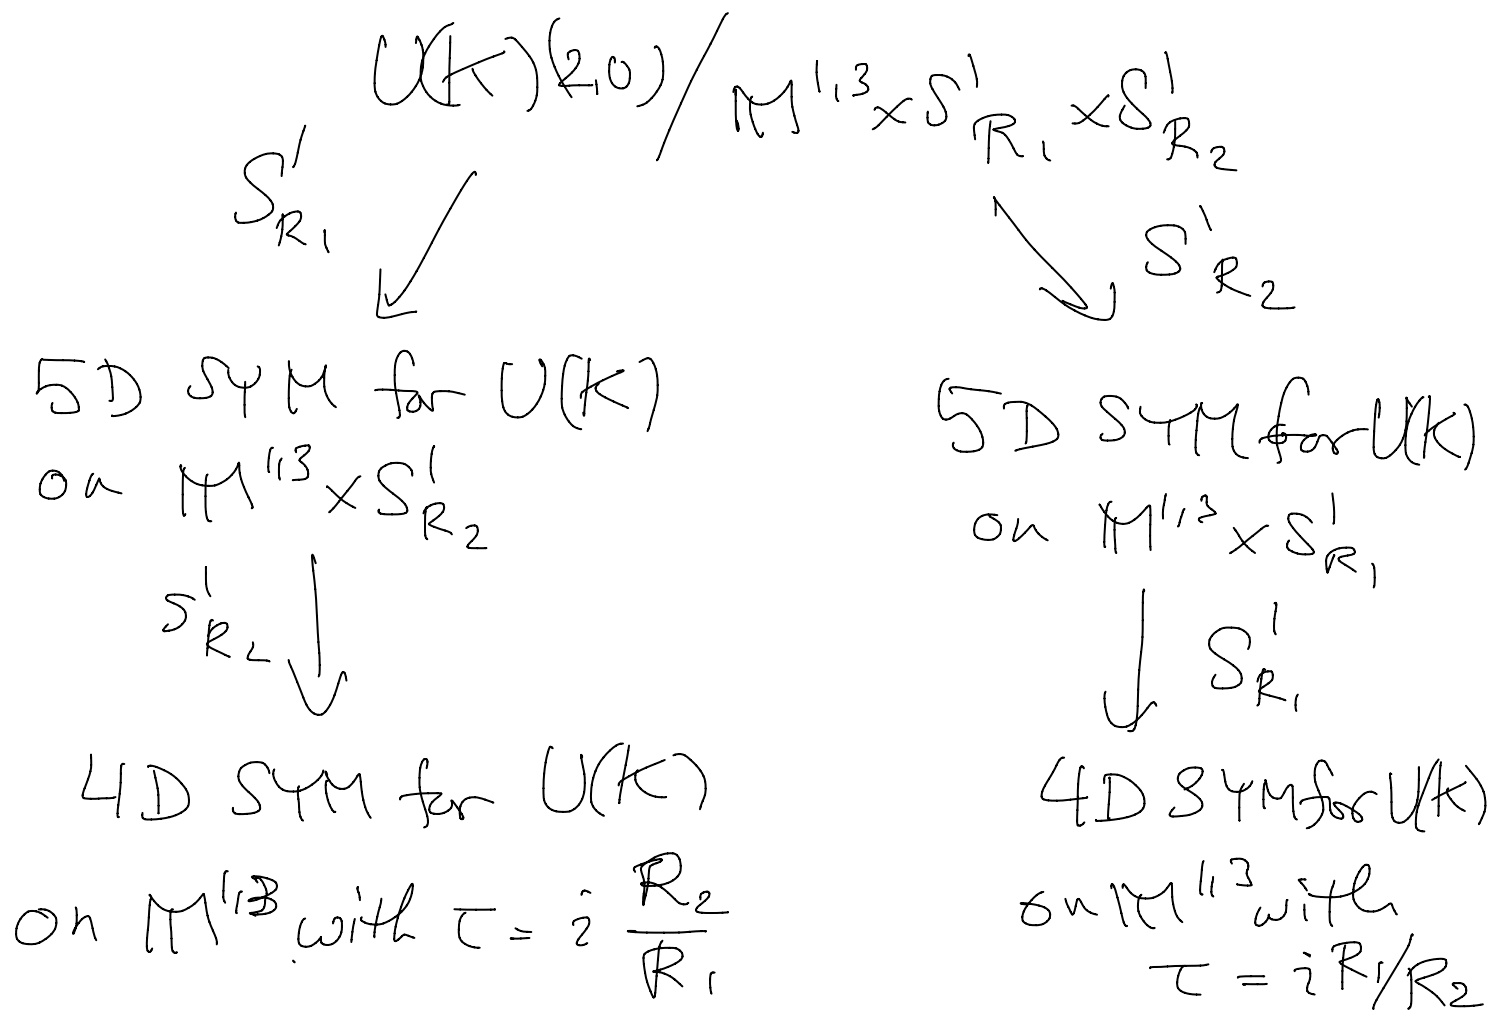 U(K) (2,0) / M^{1,3} × S^1_{R_1} × S^1_{R_2}
S^1_{R_1}
S^1_{R_2}
5D SYM for U(K)
on M^{1,3} × S^1_{R_2}
5D SYM for U(K)
on M^{1,3} × S^1_{R_1}
S^1_{R_2}
S^1_{R_1}
4D SYM for U(K)
on M^{1,3} with τ = i R_2/R_1
4D SYM for U(K)
on M^{1,3} with
τ = i R_1/R_2